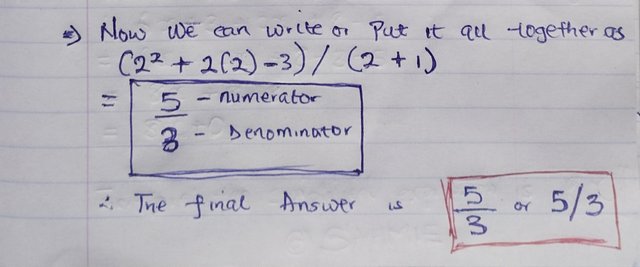 ⇒ Now we can write or Put it all together as
(2² + 2(2) - 3) / (2 + 1)
= 5/3 - numerator - Denominator
∴ The final Answer is 5/3 or 5/3